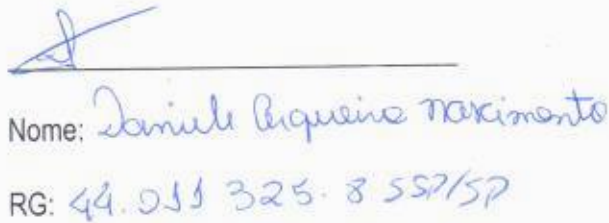 Nome: Daniele Cerqueira Nascimento
RG: 44.011 325.8 SSP/SP